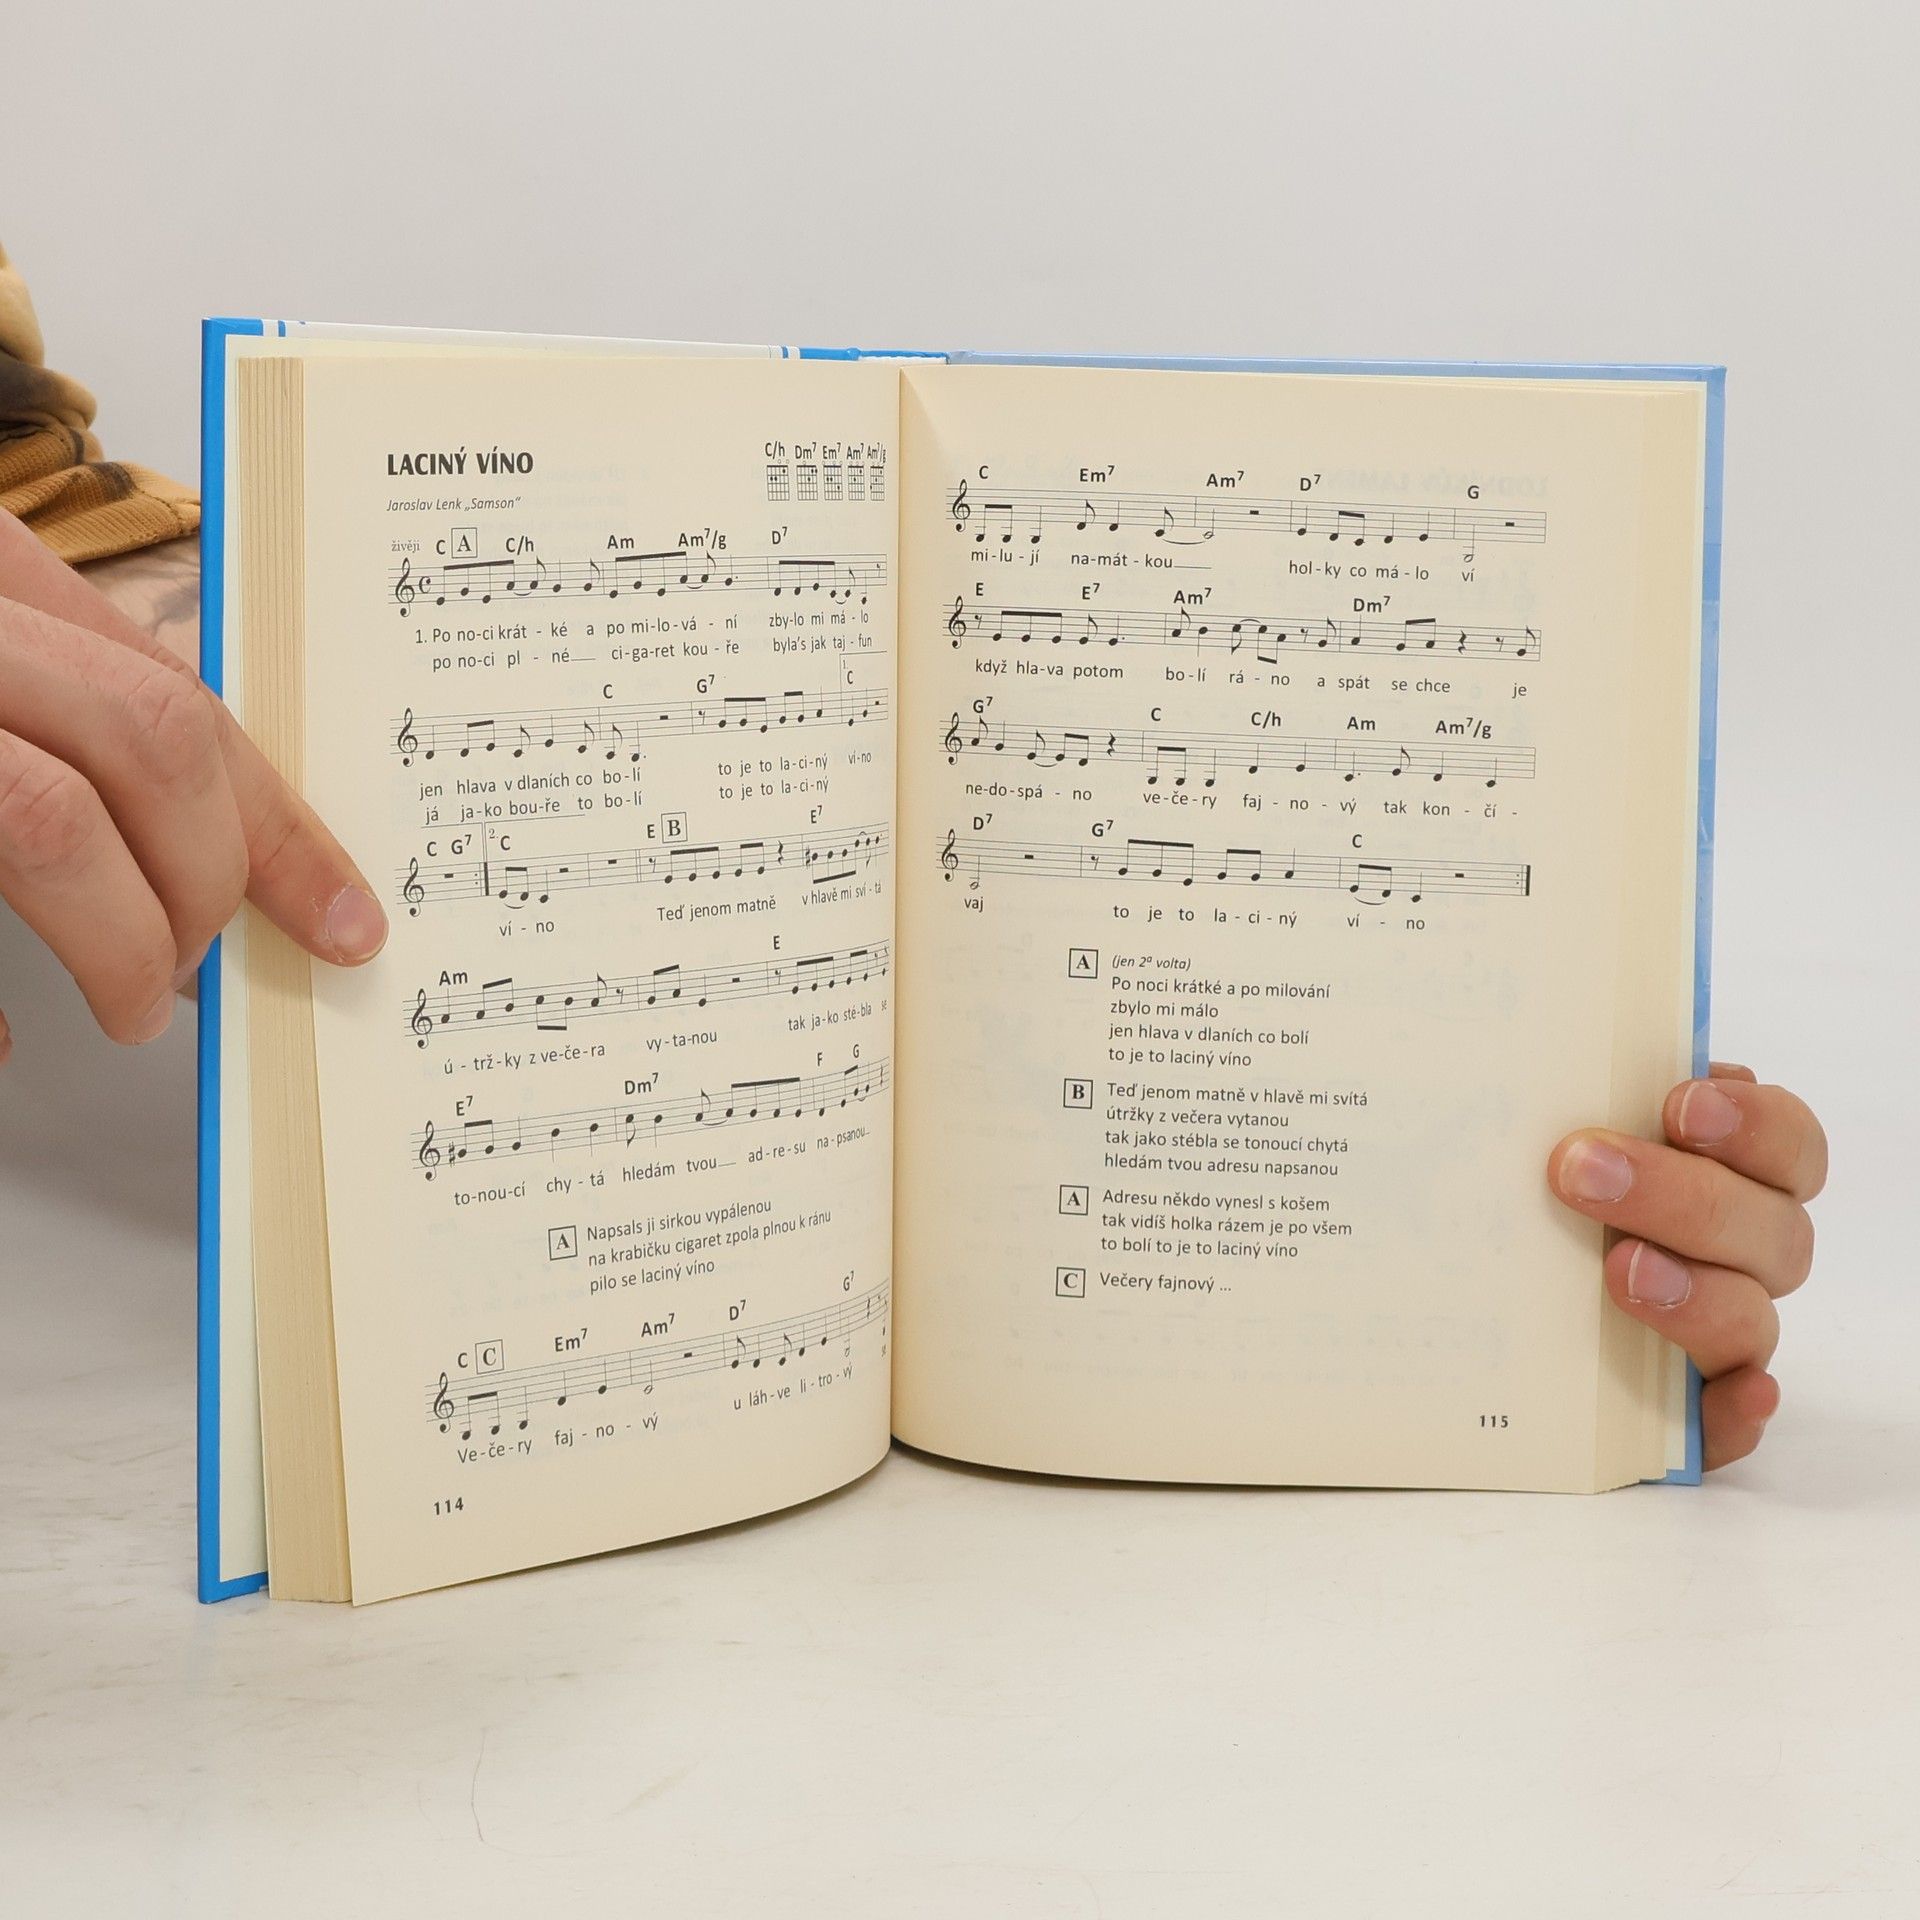 LACINÝ VÍNO
C/h Dm7 Em7 Am7 Am7/g
Jaroslav Lenk „Samson“
živěji C A C/h Am Am7/g D7
1. Po no-ci krát - ké a po mi-lo-vá - ní zby-lo mi má - lo
po no-ci pl - né ci-ga-ret kou - ře byla's jak taj - fun
C G7 1. C
jen hlava v dlaních co bo-lí to je to la-ci-ný ví-no
já ja-ko bou-ře to bo-lí to je to la-ci-ný
C G7 2. C E B E7
ví - no Teď jenom matně v hlavě mi sví - tá
Am E
ú - trž-ky z ve-če-ra vy-ta-nou tak ja-ko sté-bla se
E7 Dm7 F G
to-nou-cí chy - tá hledám tvou ad-re-su na-psanou
A Napsals ji sirkou vypálenou
na krabičku cigaret zpola plnou k ránu
pilo se laciný víno
C C Em7 Am7 D7 G7
Ve-če-ry faj - no - vý u láh-ve li-tro-vý se
114
C Em7 Am7 D7 G
mi-lu-jí na-mát-kou hol-ky co má-lo ví
E E7 Am7 Dm7
když hla-va potom bo-lí rá - no a spát se chce je
G7 C C/h Am Am7/g
ne-do-spá - no ve-če-ry faj - no - vý tak kon - čí -
D7 G7 C
vaj to je to la - ci - ný ví - no
A (jen 2ª volta)
Po noci krátké a po milování
zbylo mi málo
jen hlava v dlaních co bolí
to je to laciný víno
B Teď jenom matně v hlavě mi svítá
útržky z večera vytanou
tak jako stébla se tonoucí chytá
hledám tvou adresu napsanou
A Adresu někdo vynesl s košem
tak vidíš holka rázem je po všem
to bolí to je to laciný víno
C Večery fajnový ...
115